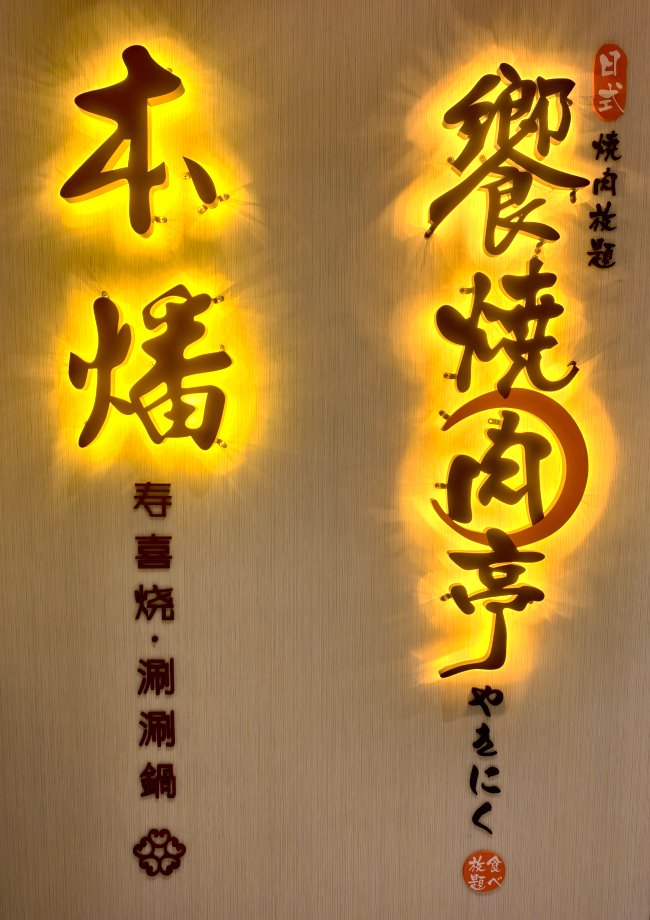 日式
焼肉放題
饗燒肉亭
やきにく
食べ
放題
本燔
寿喜烧・涮涮鍋